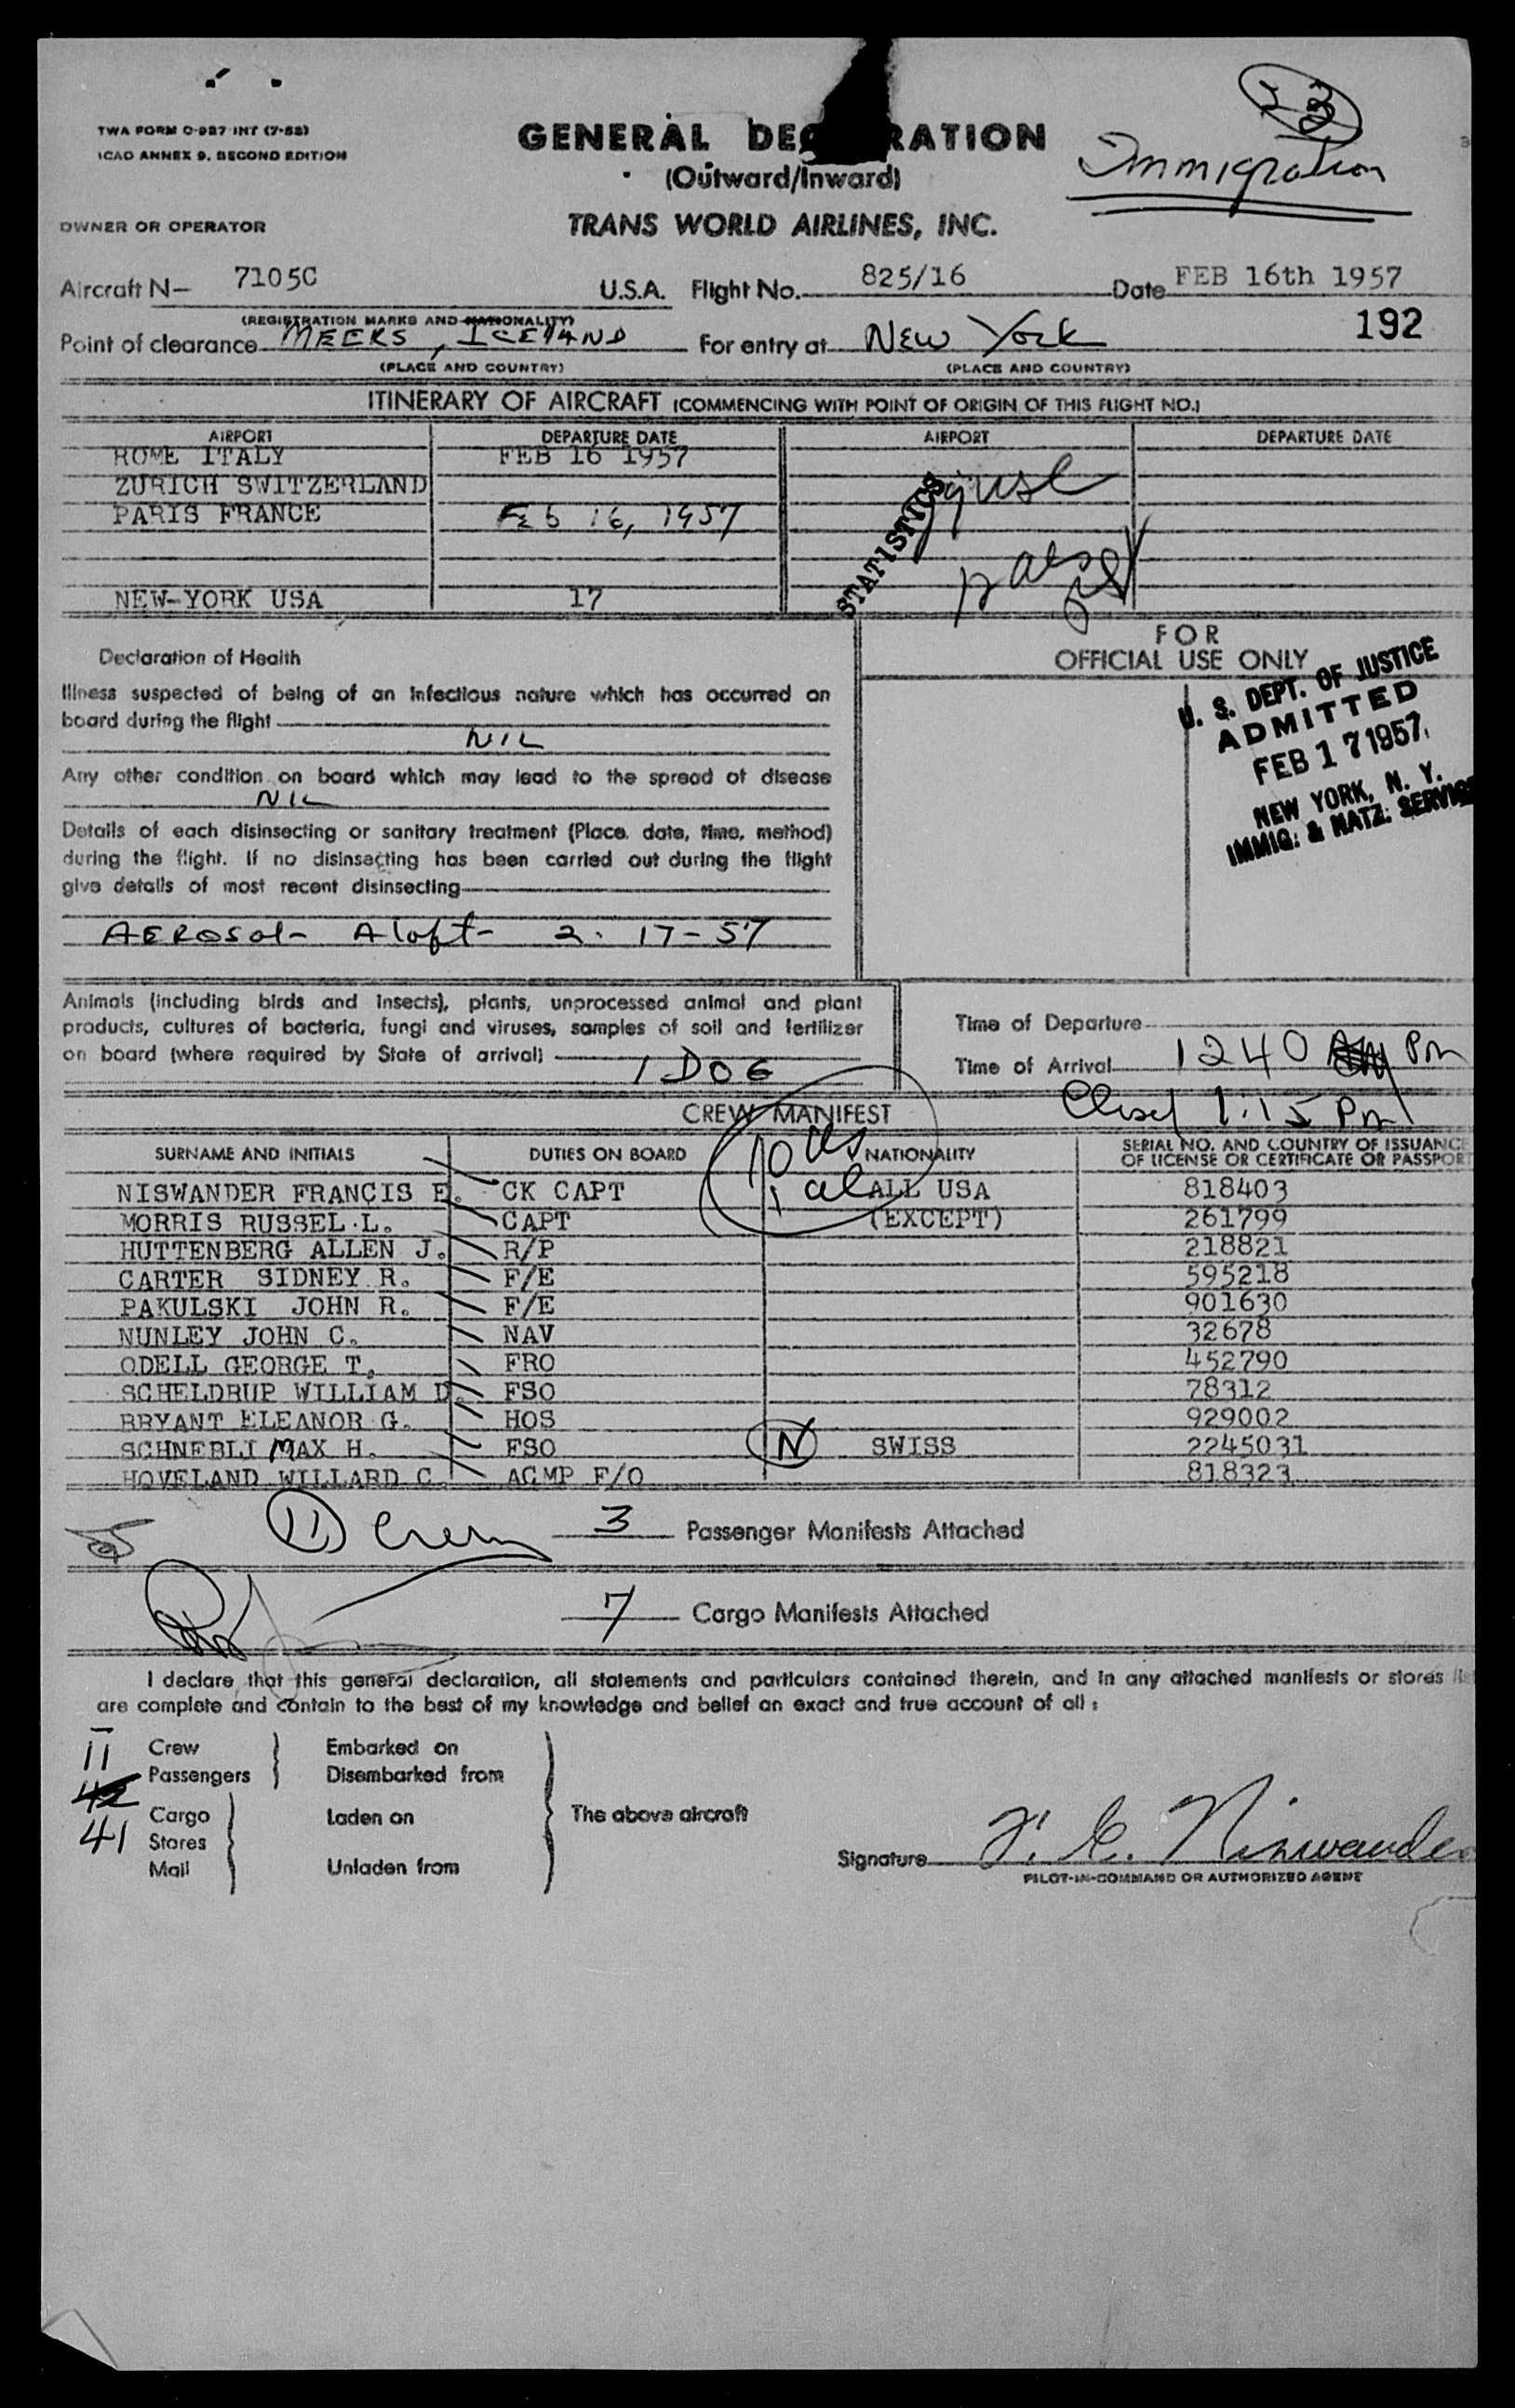 23
Immigration
TWA FORM C-927 INT (7-52)
ICAO ANNEX 9, SECOND EDITION
GENERAL DEC RATION
(Outward/Inward)
OWNER OR OPERATOR
TRANS WORLD AIRLINES, INC.
Aircraft N— 7105C U.S.A. Flight No. 825/16 Date FEB 16th 1957
(REGISTRATION MARKS AND NATIONALITY)
192
Point of clearance MEEKS, ICELAND For entry at New York
(PLACE AND COUNTRY) (PLACE AND COUNTRY)
ITINERARY OF AIRCRAFT (COMMENCING WITH POINT OF ORIGIN OF THIS FLIGHT NO.)
AIRPORT DEPARTURE DATE AIRPORT DEPARTURE DATE
ROME ITALY FEB 16 1957
ZURICH SWITZERLAND
PARIS FRANCE Feb 16, 1957
STATISTICS
NEW-YORK USA 17
Declaration of Health
Illness suspected of being of an infectious nature which has occurred on
board during the flight
NIL
Any other condition on board which may lead to the spread of disease
NIL
Details of each disinsecting or sanitary treatment (Place, date, time, method)
during the flight. If no disinsecting has been carried out during the flight
give details of most recent disinsecting
AEROSOL- Aloft- 2-17-57
FOR
OFFICIAL USE ONLY
U. S. DEPT. OF JUSTICE
ADMITTED
FEB 17 1957
NEW YORK, N. Y.
IMMIG: & NATZ: SERVICE
Animals (including birds and insects), plants, unprocessed animal and plant
products, cultures of bacteria, fungi and viruses, samples of soil and fertilizer
on board (where required by State of arrival)
1 DOG
Time of Departure
Time of Arrival 1240 Pm
Closed 1:15 Pm
CREW MANIFEST
10 us
1 al
SURNAME AND INITIALS DUTIES ON BOARD NATIONALITY SERIAL NO. AND COUNTRY OF ISSUANCE
OF LICENSE OR CERTIFICATE OR PASSPORT
NISWANDER FRANCIS E. CK CAPT ALL USA 818403
MORRIS RUSSEL L. CAPT (EXCEPT) 261799
HUTTENBERG ALLEN J. R/P 218821
CARTER SIDNEY R. F/E 595218
PAKULSKI JOHN R. F/E 901630
NUNLEY JOHN C. NAV 32678
ODELL GEORGE T. FRO 452790
SCHELDRUP WILLIAM D. FSO 78312
BRYANT ELEANOR G. HOS 929002
SCHNEBLI MAX H. FSO N SWISS 2245031
HOVELAND WILLARD C. ACMP F/O 818323
11 Crew
3 Passenger Manifests Attached
7 Cargo Manifests Attached
I declare that this general declaration, all statements and particulars contained therein, and in any attached manifests or stores lis
are complete and contain to the best of my knowledge and belief an exact and true account of all :
11 Crew Embarked on
42 Passengers Disembarked from
41 Cargo Laden on The above aircraft
Stores
Mail Unladen from
Signature F. E. Niswander
PILOT-IN-COMMAND OR AUTHORIZED AGENT